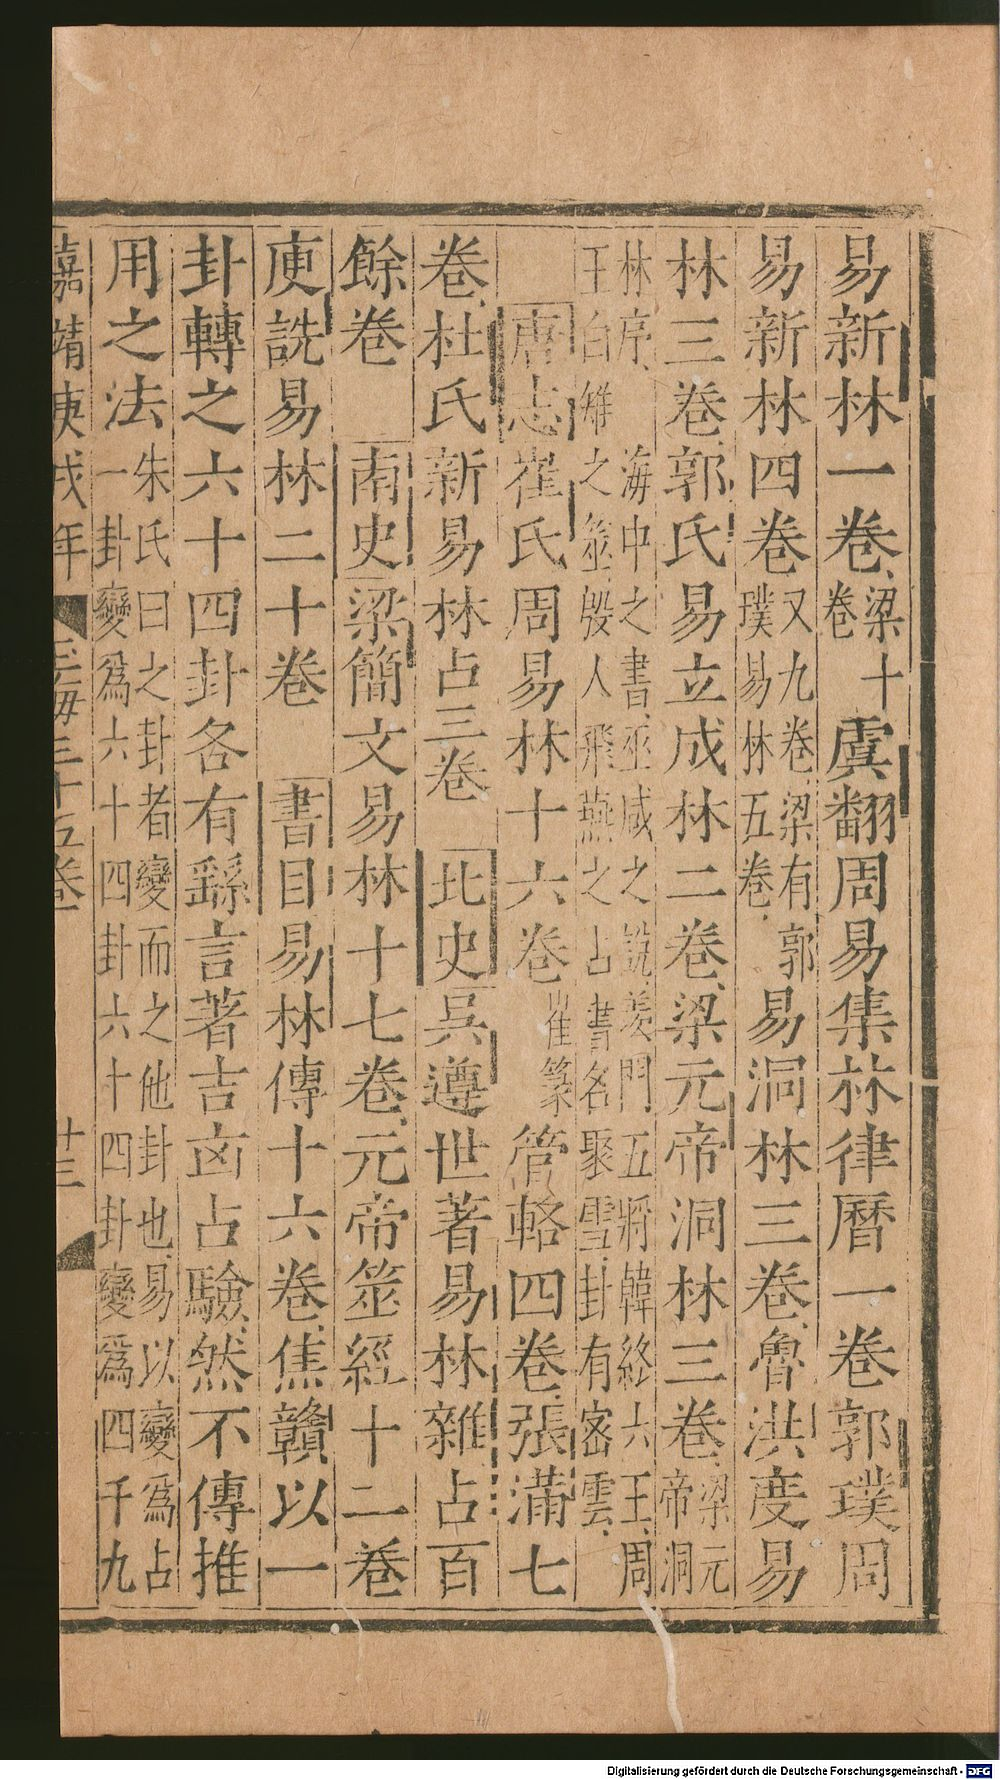 易新林一卷梁十卷虞翻周易集林律曆一卷郭璞周
易新林四卷又九卷梁有郭璞易林五卷易洞林三卷魯洪度易
林三卷郭氏易立成林二卷梁元帝洞林三卷梁元帝洞
林序海中之書巫咸之說羨門五將韓終六王周
王白雉之筮殷人飛燕之占書名聚雪卦有密雲
唐志崔氏周易林十六卷崔篆管輅四卷張滿七
卷杜氏新易林占三卷北史吳遵世著易林雜占百
餘卷南史梁簡文易林十七卷元帝筮經十二卷
庾詵易林二十卷書目易林傳十六卷焦贛以一
卦轉之六十四卦各有繇言著吉凶占驗然不傳推
用之法朱氏曰之卦者變而之他卦也易以變為占
一卦變為六十四卦六十四卦變為四千九
嘉靖庚戌年 玉海三十五卷 十三
Digitalisierung gefördert durch die Deutsche Forschungsgemeinschaft - DFG